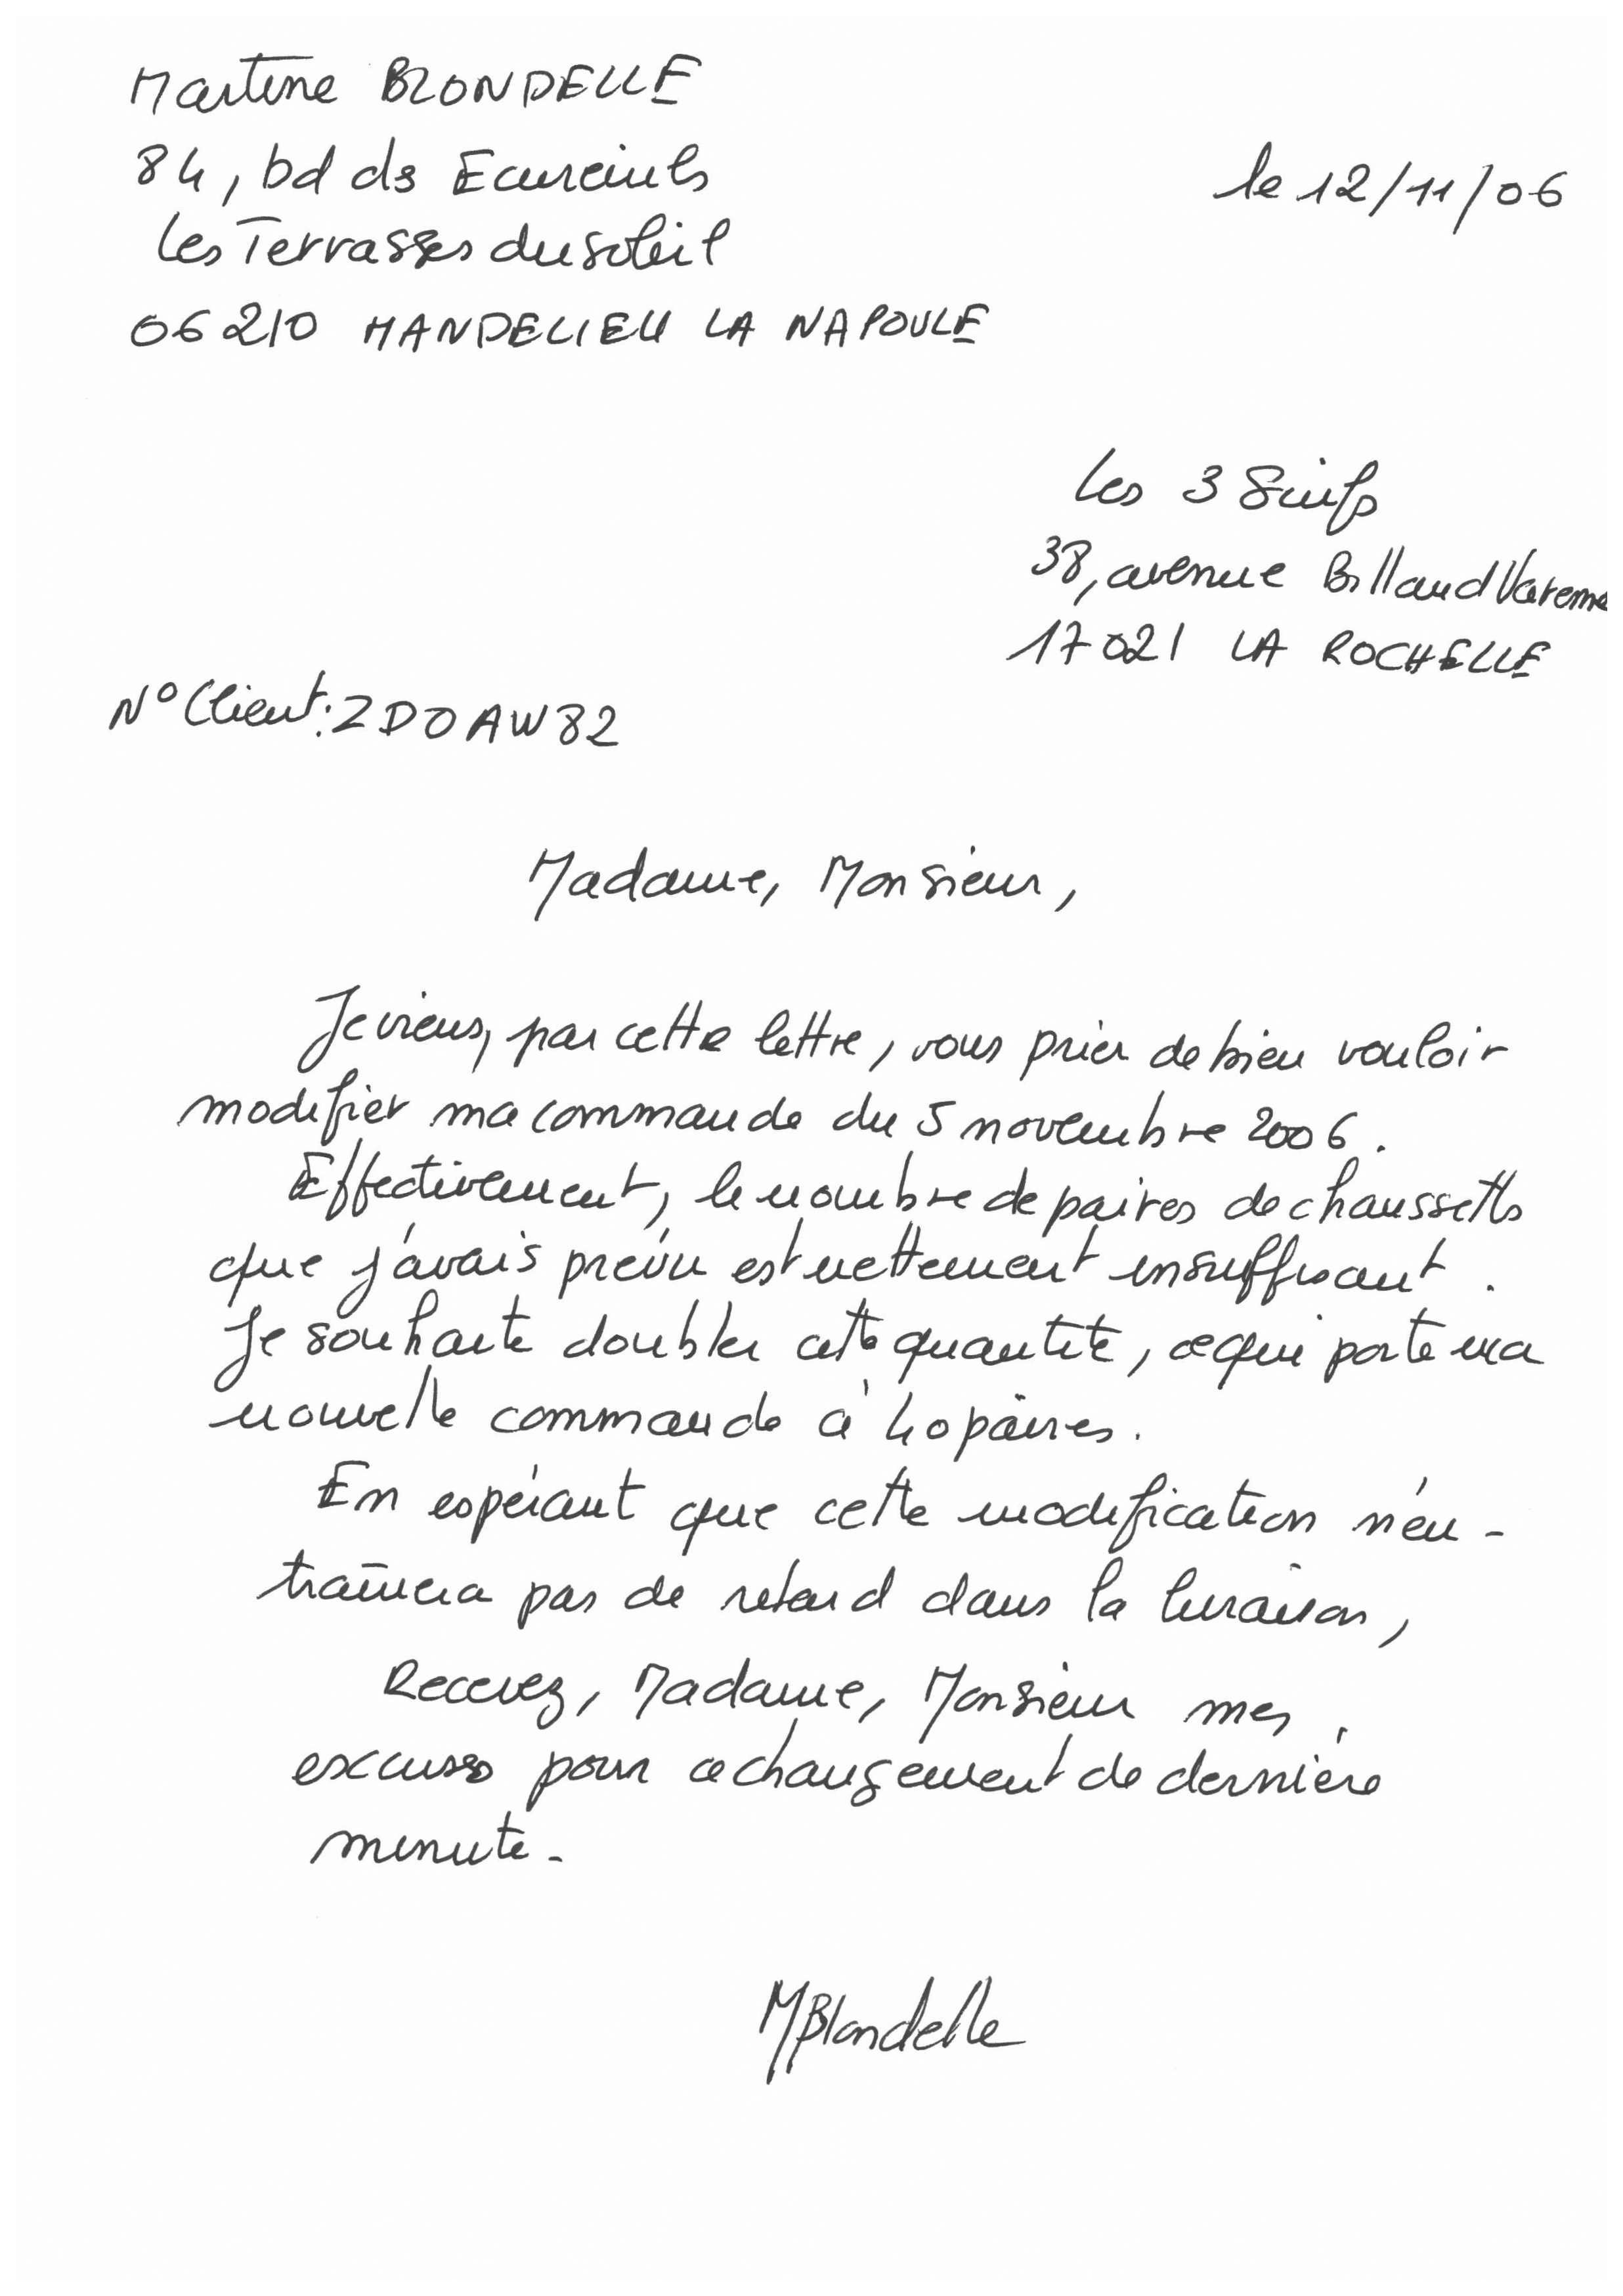 Martine BLONDELLE
84, bd des Ecureuils
le 12/11/06
Les Terrasses du soleil
06210 MANDELIEU LA NAPOULE
Les 3 Suifs
38, avenue Billaud Varenne
17021 LA ROCHELLE
N° Client : ZDOAW82
Madame, Monsieur,
Je viens, par cette lettre, vous prier de bien vouloir
modifier ma commande du 5 novembre 2006.
Effectivement, le nombre de paires de chaussettes
que j'avais prévu est nettement insuffisant.
Je souhaite doubler cette quantité, ce qui porte ma
nouvelle commande à 40 paires.
En espérant que cette modification n'en-
traînera pas de retard dans la livraison,
Recevez, Madame, Monsieur mes
excuses pour ce changement de dernière
minute.
MBlondelle